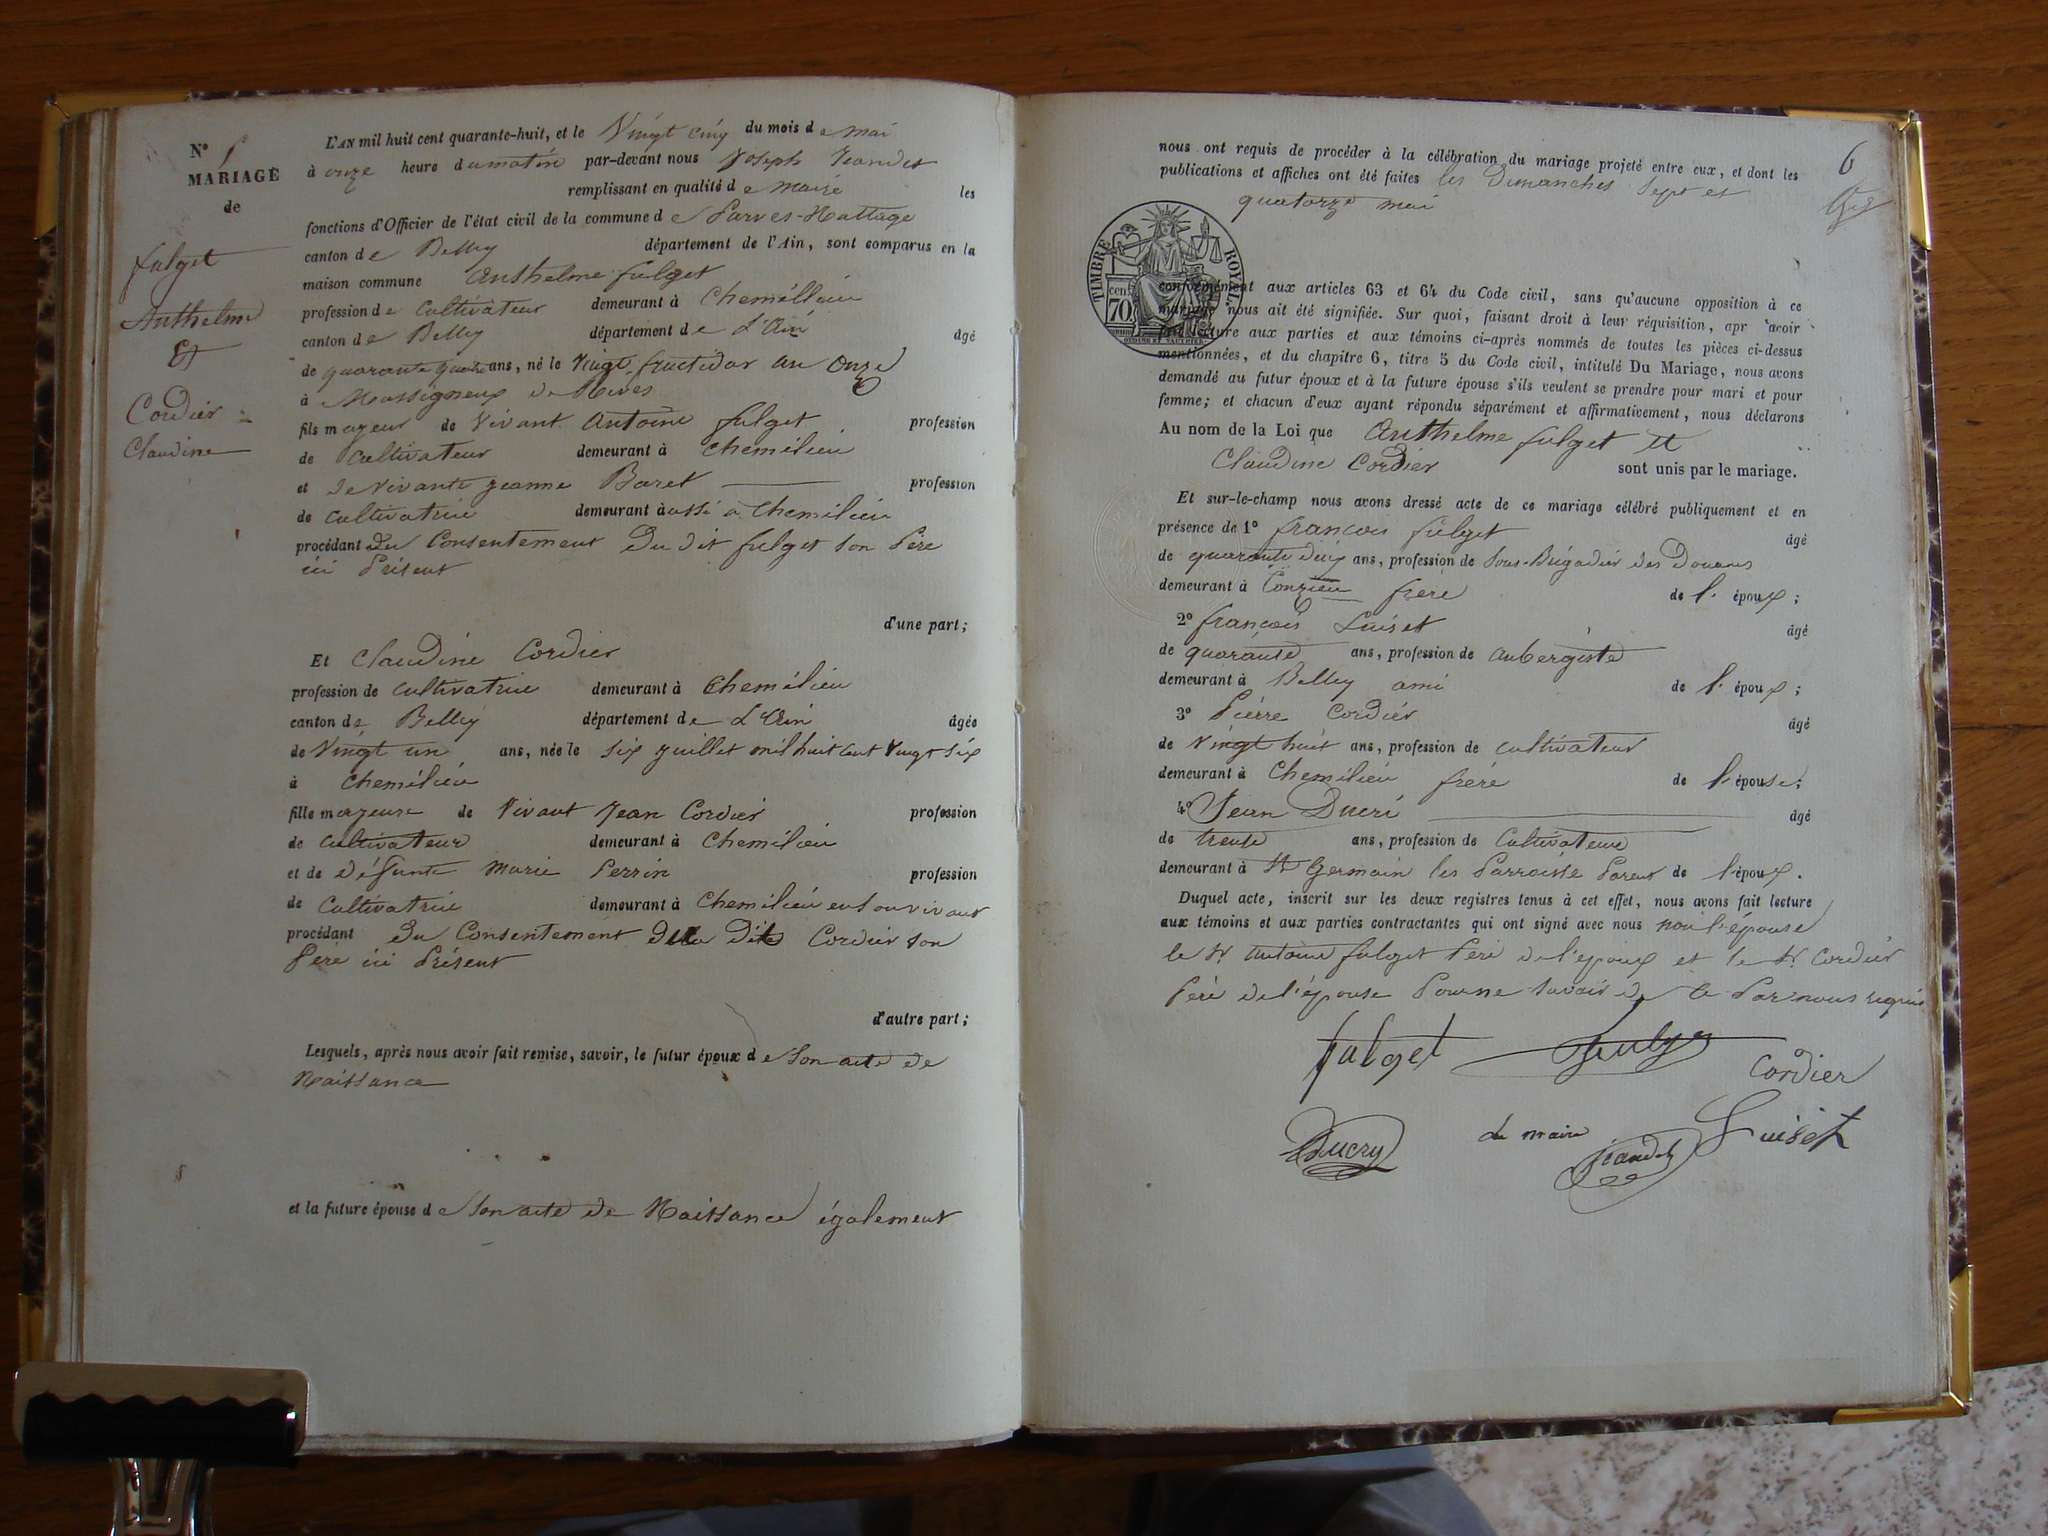 N° 5
MARIAGE
de
fulget
Anthelme
Et
Cordier
Claudine
L'AN mil huit cent quarante-huit, et le Vingt cinq du mois de mai
à onze heure du matin par-devant nous Joseph Jeandet
remplissant en qualité de maire les
fonctions d'Officier de l'état civil de la commune de Parves-Nattage
canton de Belley département de l'Ain, sont comparus en la
maison commune Anthelme fulget
profession de cultivateur demeurant à Cheméllieu
canton de Belley département de L'Ain âgé
de quarante quatre ans, né le Vingt fructidor an Onze
à Massigneux de Rives
fils mayeur de Vivant Antoine fulget profession
de cultivateur demeurant à Chemélieu
et de vivante jeanne Baret profession
de cultivatrice demeurant à aussi a Chemélieu
procédant du Consentement Du dit fulget son Père
ici Présent
d'une part;
Et Claudine Cordier
profession de cultivatrice demeurant à Chemélieu
canton de Belley département de L'Ain âgée
de Vingt un ans, née le six juillet mil huit cent vingt six
à Chemélieu
fille mayeure de Vivant Jean Cordier profession
de cultivateur demeurant à Chemélieu
et de défunte Marie Perrin profession
de Cultivatrice demeurant à Chemélieu en son vivant
procédant du Consentement Du Dit Cordier son
Père ici Présent
d'autre part;
Lesquels, après nous avoir fait remise, savoir, le futur époux de Son acte de
Naissance
et la future épouse de Son acte de Naissance également
6
nous ont requis de procéder à la célébration du mariage projeté entre eux, et dont les
publications et affiches ont été faites les Dimanches Sept et
quatorze mai
TIMBRE ROYAL
cent 70.
conformément aux articles 63 et 64 du Code civil, sans qu'aucune opposition à ce
mariage nous ait été signifiée. Sur quoi, faisant droit à leur réquisition, apr avoir
fait lecture aux parties et aux témoins ci-après nommés de toutes les pièces ci-dessus
mentionnées, et du chapitre 6, titre 5 du Code civil, intitulé Du Mariage, nous avons
demandé au futur époux et à la future épouse s'ils veulent se prendre pour mari et pour
femme; et chacun d'eux ayant répondu séparément et affirmativement, nous déclarons
Au nom de la Loi que Anthelme fulget et
Claudine Cordier sont unis par le mariage.
Et sur-le-champ nous avons dressé acte de ce mariage célébré publiquement et en
présence de 1° françois fulget âgé
de quarante deux ans, profession de Sous-Brigadier des Douanes
demeurant à Conzieu frère de l'époux;
2° françois Luiset âgé
de quarante ans, profession de aubergiste
demeurant à Belley ami de l'époux;
3° Pierre Cordier âgé
de vingt huit ans, profession de cultivateur
demeurant à Chemélieu frère de l'épouse;
4° Jean Ducri âgé
de trente ans, profession de Cultivateur
demeurant à St Germain les Parroisse Parent de l'époux.
Duquel acte, inscrit sur les deux registres tenus à cet effet, nous avons fait lecture
aux témoins et aux parties contractantes qui ont signé avec nous non l'épouse
le Sr Antoine fulget Père de l'époux et le Sr Cordier
Père de l'épouse Pour ne savoir de ce Par nous requis
fulget fulget
Cordier
Ducry
du maire
Jeandet
Luiset